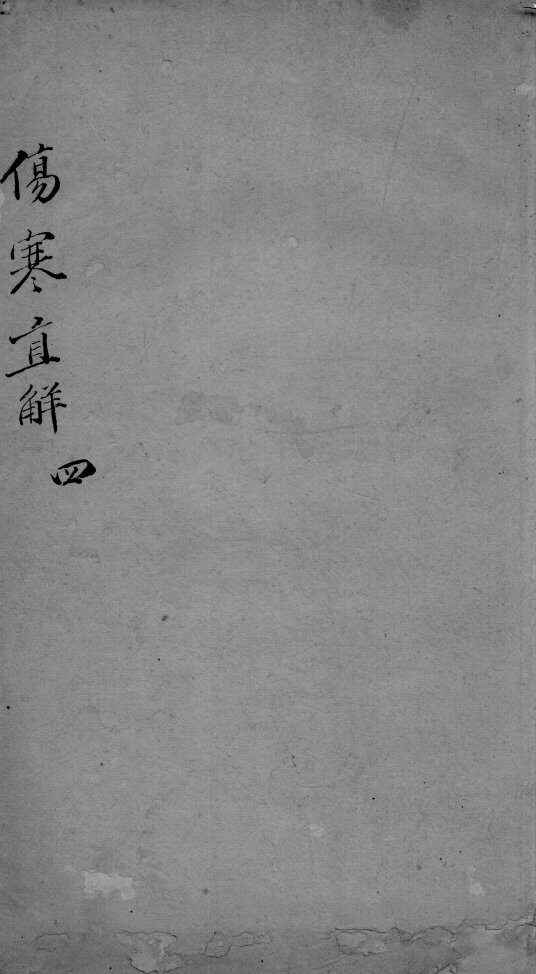 傷寒直解 四